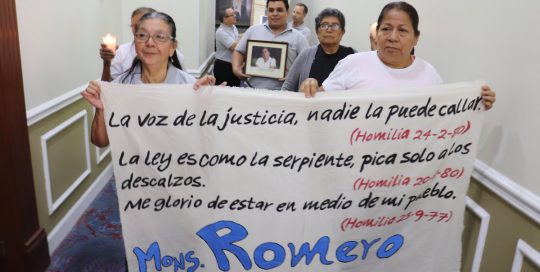 La voz de la justicia, nadie la puede callar.
(Homilia 24-2-80)
La ley es como la serpiente, pica solo a los
descalzos.
(Homilia 20-1-80)
Me glorio de estar en medio de mi pueblo.
(Homilia 25-9-77)
Mons. Romero